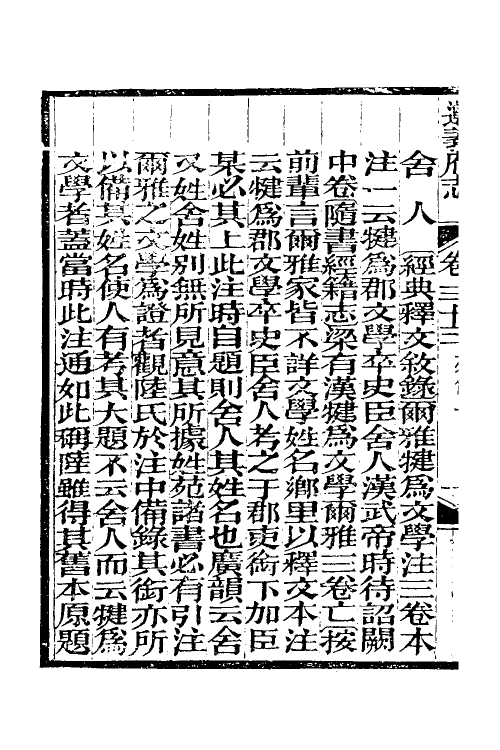 遵義府志
卷三十三
舍人 經典釋文敘錄爾雅犍爲文學注三卷本
注一云犍爲郡文學卒史臣舍人漢武帝時待詔闕
中卷隋書經籍志梁有漢犍爲文學爾雅三卷亡按
前輩言爾雅家皆不詳文學姓名鄉里以釋文本注
云犍爲郡文學卒史臣舍人考之于郡吏銜下加臣
某必其上此注時自題則舍人其姓名也廣韻云舍
又姓舍姓別無所見意其所據姓苑諸書必有引注
爾雅之文學爲證者觀陸氏於注中備錄其銜亦所
以備其姓名使人有考其大題不云舍人而云犍爲
文學者蓋當時此注通如此稱陸雖得其舊本原題